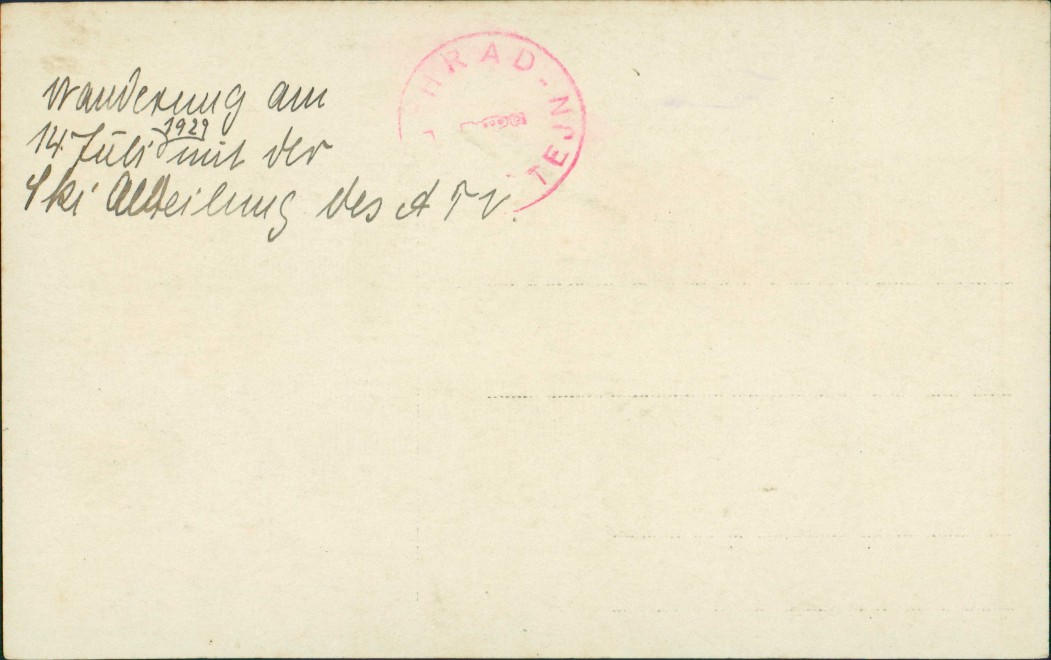 Wanderung am
14. Juli 1929 mit der
Ski Abteilung des A T V.
HRAD-NJ
TEJ